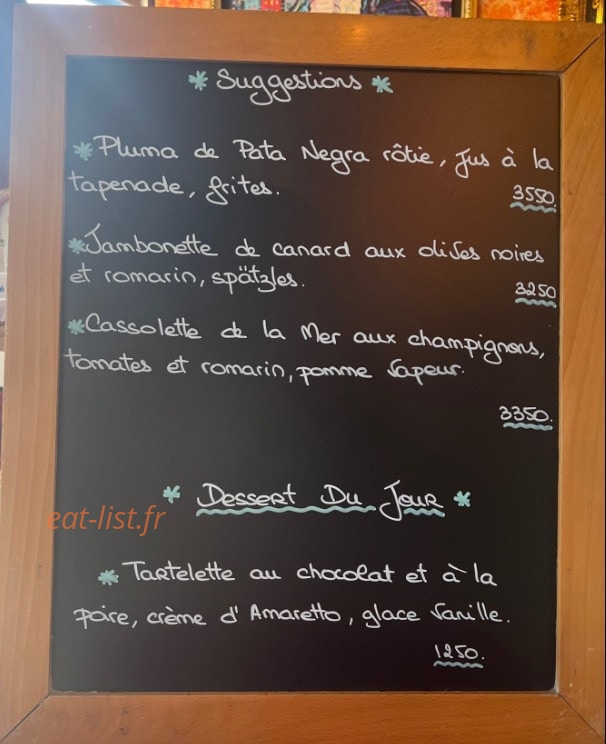 * Suggestions *
* Pluma de Pata Negra rôtie, Jus à la
tapenade, frites.
3550.
* Jambonette de canard aux olives noires
et romarin, spätzles.
3250
* Cassolette de la Mer aux champignons,
tomates et romarin, pomme vapeur.
3350.
* Dessert Du Jour *
eat-list.fr
* Tartelette au chocolat et à la
poire, crème d'Amaretto, glace vanille.
1250.